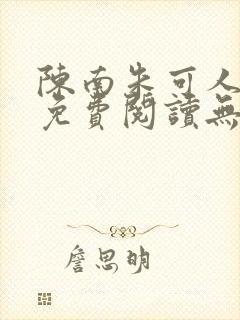 陳南朱可人
免費閱讀無
詹思明